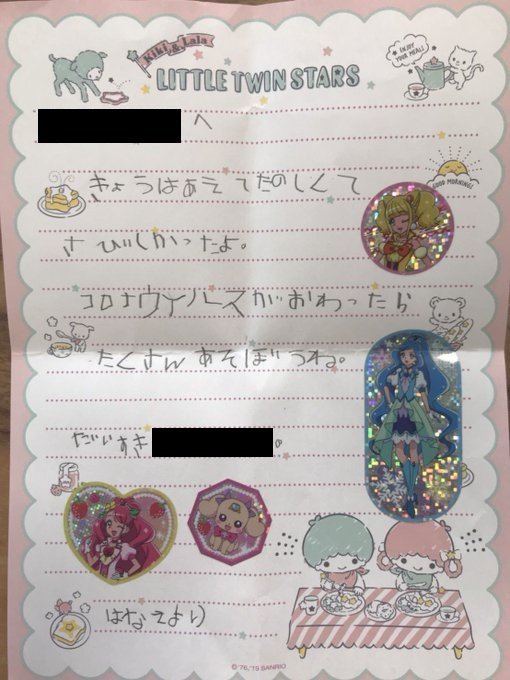 Kiki & Lala
LITTLE TWIN STARS
ENJOY YOUR MEAL!
へ
きょうはあえてたのしくて
GOOD MORNING!
さびしかったよ。
コロナウイルースがおわったら
たくさんあそぼうね。
だいすき
。
はなえより
© '76, '19 SANRIO